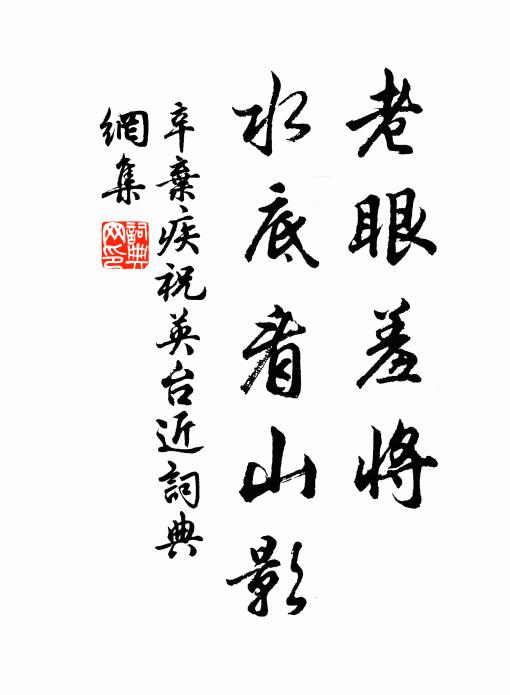 老眼羞將
水底看山影
辛棄疾祝英台近詞典
網集
詞典网印